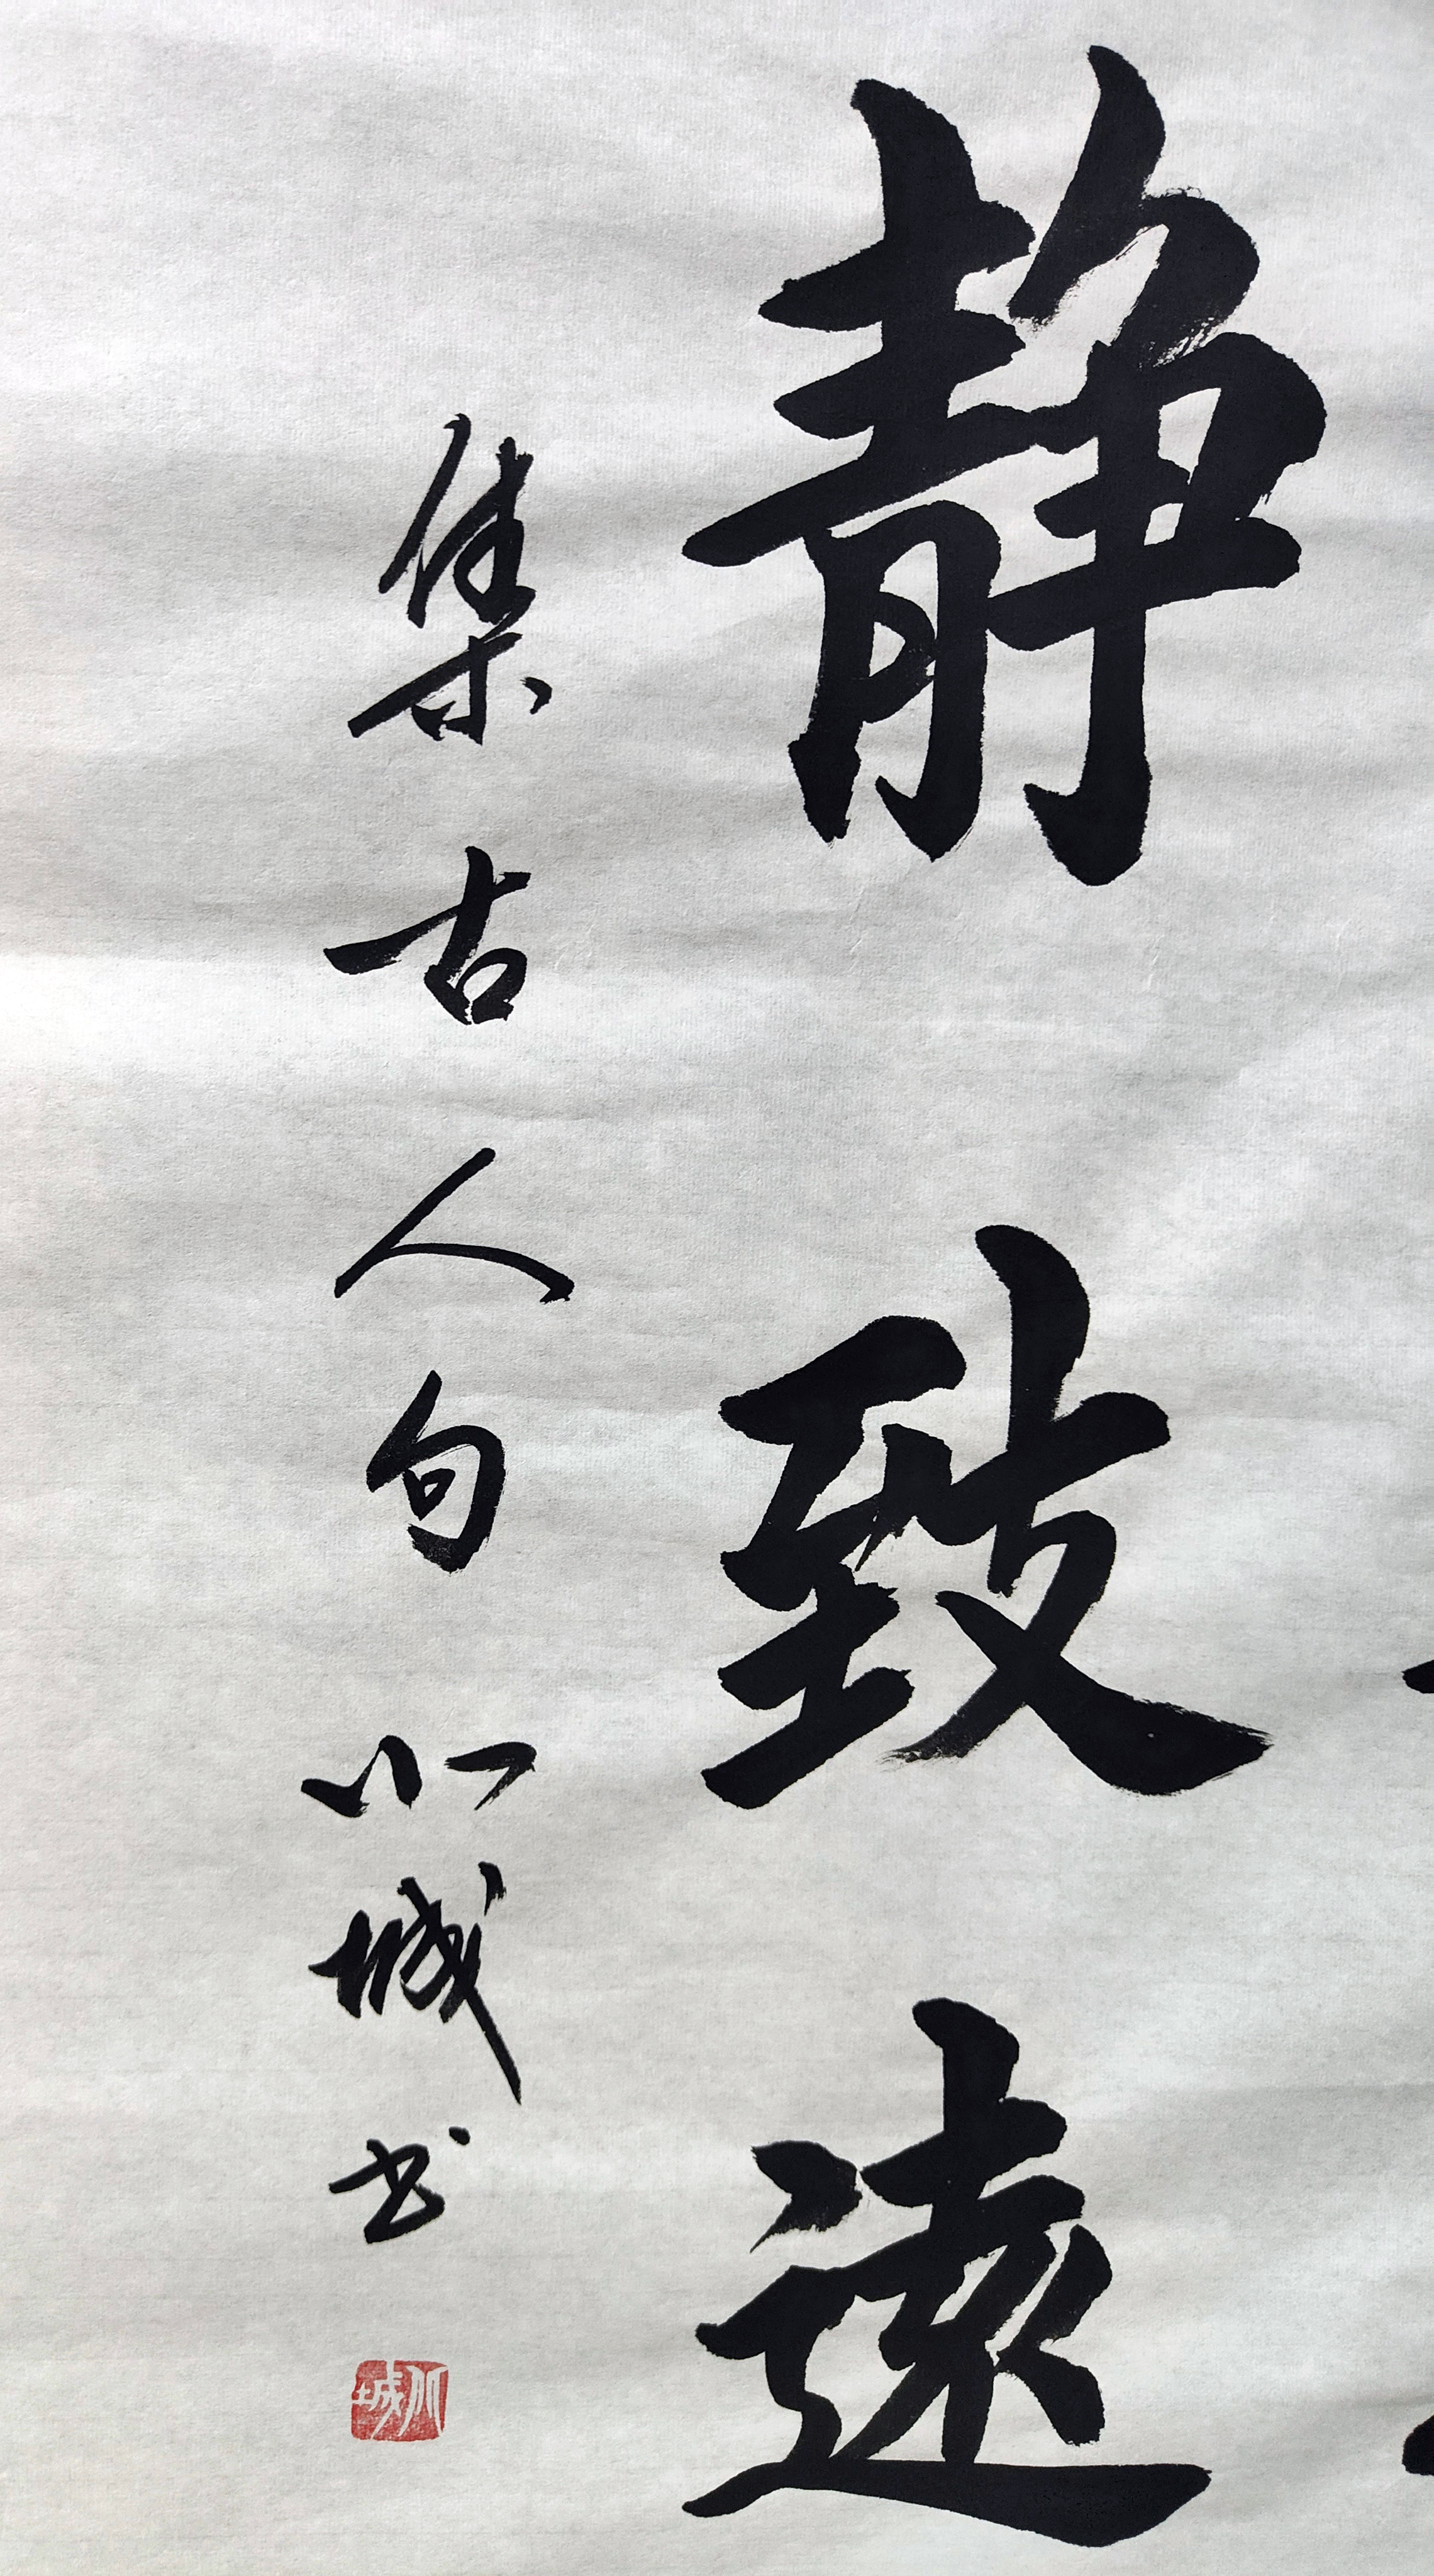 静致遠
集古人句小城书
小城